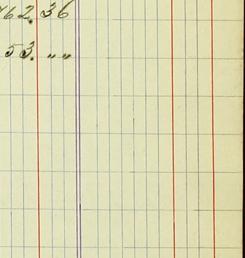 762.36
53. „„